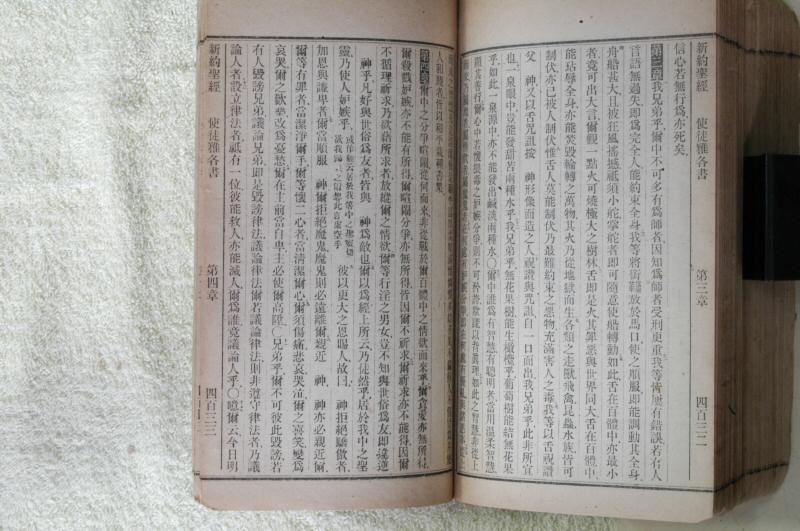 新約聖經　使徒雅各書　第三章　四百三二
信心若無行爲亦死矣
第三章 我兄弟乎爾中不可多有爲師者因知爲師者受刑更重我等皆屢有錯誤若有人
言語無過失即爲完全人能約束全身我等將銜轡放於馬口使之順服即能調動其全身
舟船甚大且被狂風搖撼祗須小舵掌舵者即可隨意使船轉動如此舌在百體中亦最小
者竟可出大言爾觀一點火可燒極大之樹林舌即是火其罪惡與世界同大舌在百體中
能玷辱全身亦能焚毀輪轉之萬物其火乃從地獄而生各類之走獸飛禽昆蟲水族皆可
制伏亦已被人制伏惟舌人莫能制伏乃最難約束之惡物充滿害人之毒我等以舌祝讚
父　神又以舌咒詛按　神形像而造之人祝讚與咒詛自一口而出我兄弟乎此非所宜
也　泉眼中豈能發甜苦兩種水乎我兄弟乎無花果樹能生橄欖乎葡萄樹能結無花果
乎如此一泉源中亦不能發出鹹淡兩種水〇爾中誰爲有智慧有聰明者當用溫柔智慧
心中若懷狠毒之妒嫉分爭則不可矜誇欺謊以背眞理如此之智慧非從上
人
第四章 爾中之分爭喧鬧從何而來非從戰於爾百體中之情欲而來乎爾貪婪亦無所得
爾殺戮妒嫉亦不能有所得爾喧鬧分爭亦無所得皆因爾不祈求爾祈求亦不能得因爾
不循理祈求乃欲藉所求者放縱爾之情欲爾等行淫之男女豈不知與世俗爲友即違逆
神乎凡好與世俗爲友者皆與　神爲敵也爾以爲經上所云乃徒然乎居於我中之聖
靈乃使人妒嫉乎 彼以更大之恩賜人故曰　神拒絕驕傲者
加恩與謙卑者爾當順服　神爾拒絕魔鬼魔鬼則必遠離爾爾近　神　神亦必親近爾
爾等有罪者當潔淨爾手爾等懷二心者當清潔爾心爾須傷痛悲哀哭泣爾之喜笑變爲
哀哭爾之歡樂改爲憂愁爾在主前當自卑主必使爾高陞〇兄弟乎爾不可彼此毀謗若
有人毀謗兄弟議論兄弟即是毀謗律法議論律法爾若議論律法則非遵守律法者乃議
論人者設立律法者祗有一位彼能救人亦能滅人爾爲誰竟議論人乎〇噫爾云今日明
新約聖經　使徒雅各書　第四章　四百三三